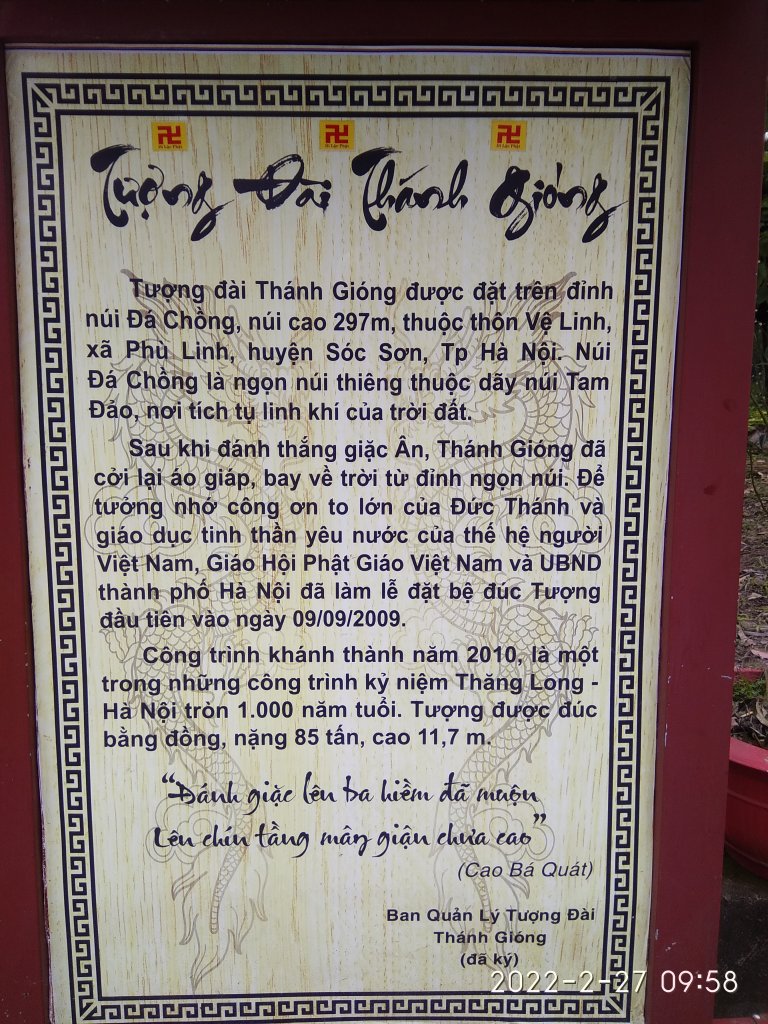 Di Lặc Phật
Di Lặc Phật
Di Lặc Phật
Tượng Đài Thánh Gióng
Tượng đài Thánh Gióng được đặt trên đỉnh
núi Đá Chồng, núi cao 297m, thuộc thôn Vệ Linh,
xã Phù Linh, huyện Sóc Sơn, Tp Hà Nội. Núi
Đá Chồng là ngọn núi thiêng thuộc dãy núi Tam
Đảo, nơi tích tụ linh khí của trời đất.
Sau khi đánh thắng giặc Ân, Thánh Gióng đã
cởi lại áo giáp, bay về trời từ đỉnh ngọn núi. Để
tưởng nhớ công ơn to lớn của Đức Thánh và
giáo dục tinh thần yêu nước của thế hệ người
Việt Nam, Giáo Hội Phật Giáo Việt Nam và UBND
thành phố Hà Nội đã làm lễ đặt bệ đúc Tượng
đầu tiên vào ngày 09/09/2009.
Công trình khánh thành năm 2010, là một
trong những công trình kỷ niệm Thăng Long -
Hà Nội tròn 1.000 năm tuổi. Tượng được đúc
bằng đồng, nặng 85 tấn, cao 11,7 m.
“Đánh giặc lên ba hiềm đã muộn
Lên chín tầng mây giận chưa cao”
(Cao Bá Quát)
Ban Quản Lý Tượng Đài
Thánh Gióng
(đã ký)
2022-2-27 09:58